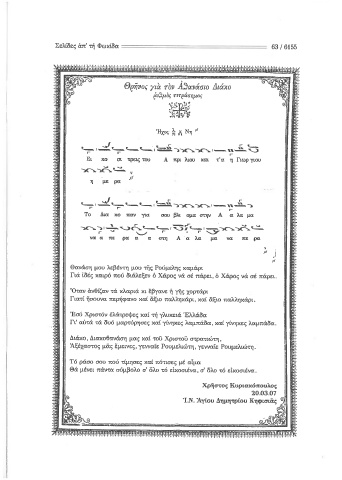 Σελίδες ἀπ' τή Φωκίδα
63 / 6155
Θρῆνος γιὰ τὸν Ἀθανάσιο Διάκο
ρυθμὸς τετράσημος
Ἦχος Νη
Ει κο σι τρεις του Α πρι λιου και τ'α η Γιωρ γιου
η με ρα
Το Δια κο παν για σου βλε μα στην Α α λα μα
να πε ρα α α στη Α α λα μα να πε ρα
Θανάση μου λεβέντη μου τῆς Ρούμελης καμάρι
Γιὰ ἰδὲς καιρὸ ποὺ διάλεξεν ὁ Χάρος νά σέ πάρει, ὁ Χάρος νά σέ πάρει.
Ὅταν ἀνθίζαν τὰ κλαριά κι ἔβγανε ἡ γῆς χορτάρι
Γιατί ἤσουνα περήφανο καί ἄξιο παλληκάρι, καί ἄξιο παλληκάρι.
Ἐσύ Χριστὸν ἐλάτρεψες καί τή γλυκειά Ἑλλάδα
Γι' αὐτά τά δυό μαρτύρησες καί γίνηκες λαμπάδα, καί γίνηκες λαμπάδα.
Διάκο, Διακοθανάση μας καί τοῦ Χριστοῦ στρατιώτη,
Ἀξέχαστος μᾶς ἔμεινες, γενναῖε Ρουμελιώτη, γενναῖε Ρουμελιώτη.
Τό ράσο σου πού τίμησες καί πότισες μέ αἷμα
Θά μένει πάντα σύμβολο σ' ὅλο τό εἰκοσιένα, σ' ὅλο τό εἰκοσιένα.
Χρῆστος Κυριακόπουλος
20.03.07
Ἱ.Ν. Ἁγίου Δημητρίου Κηφισιᾶς